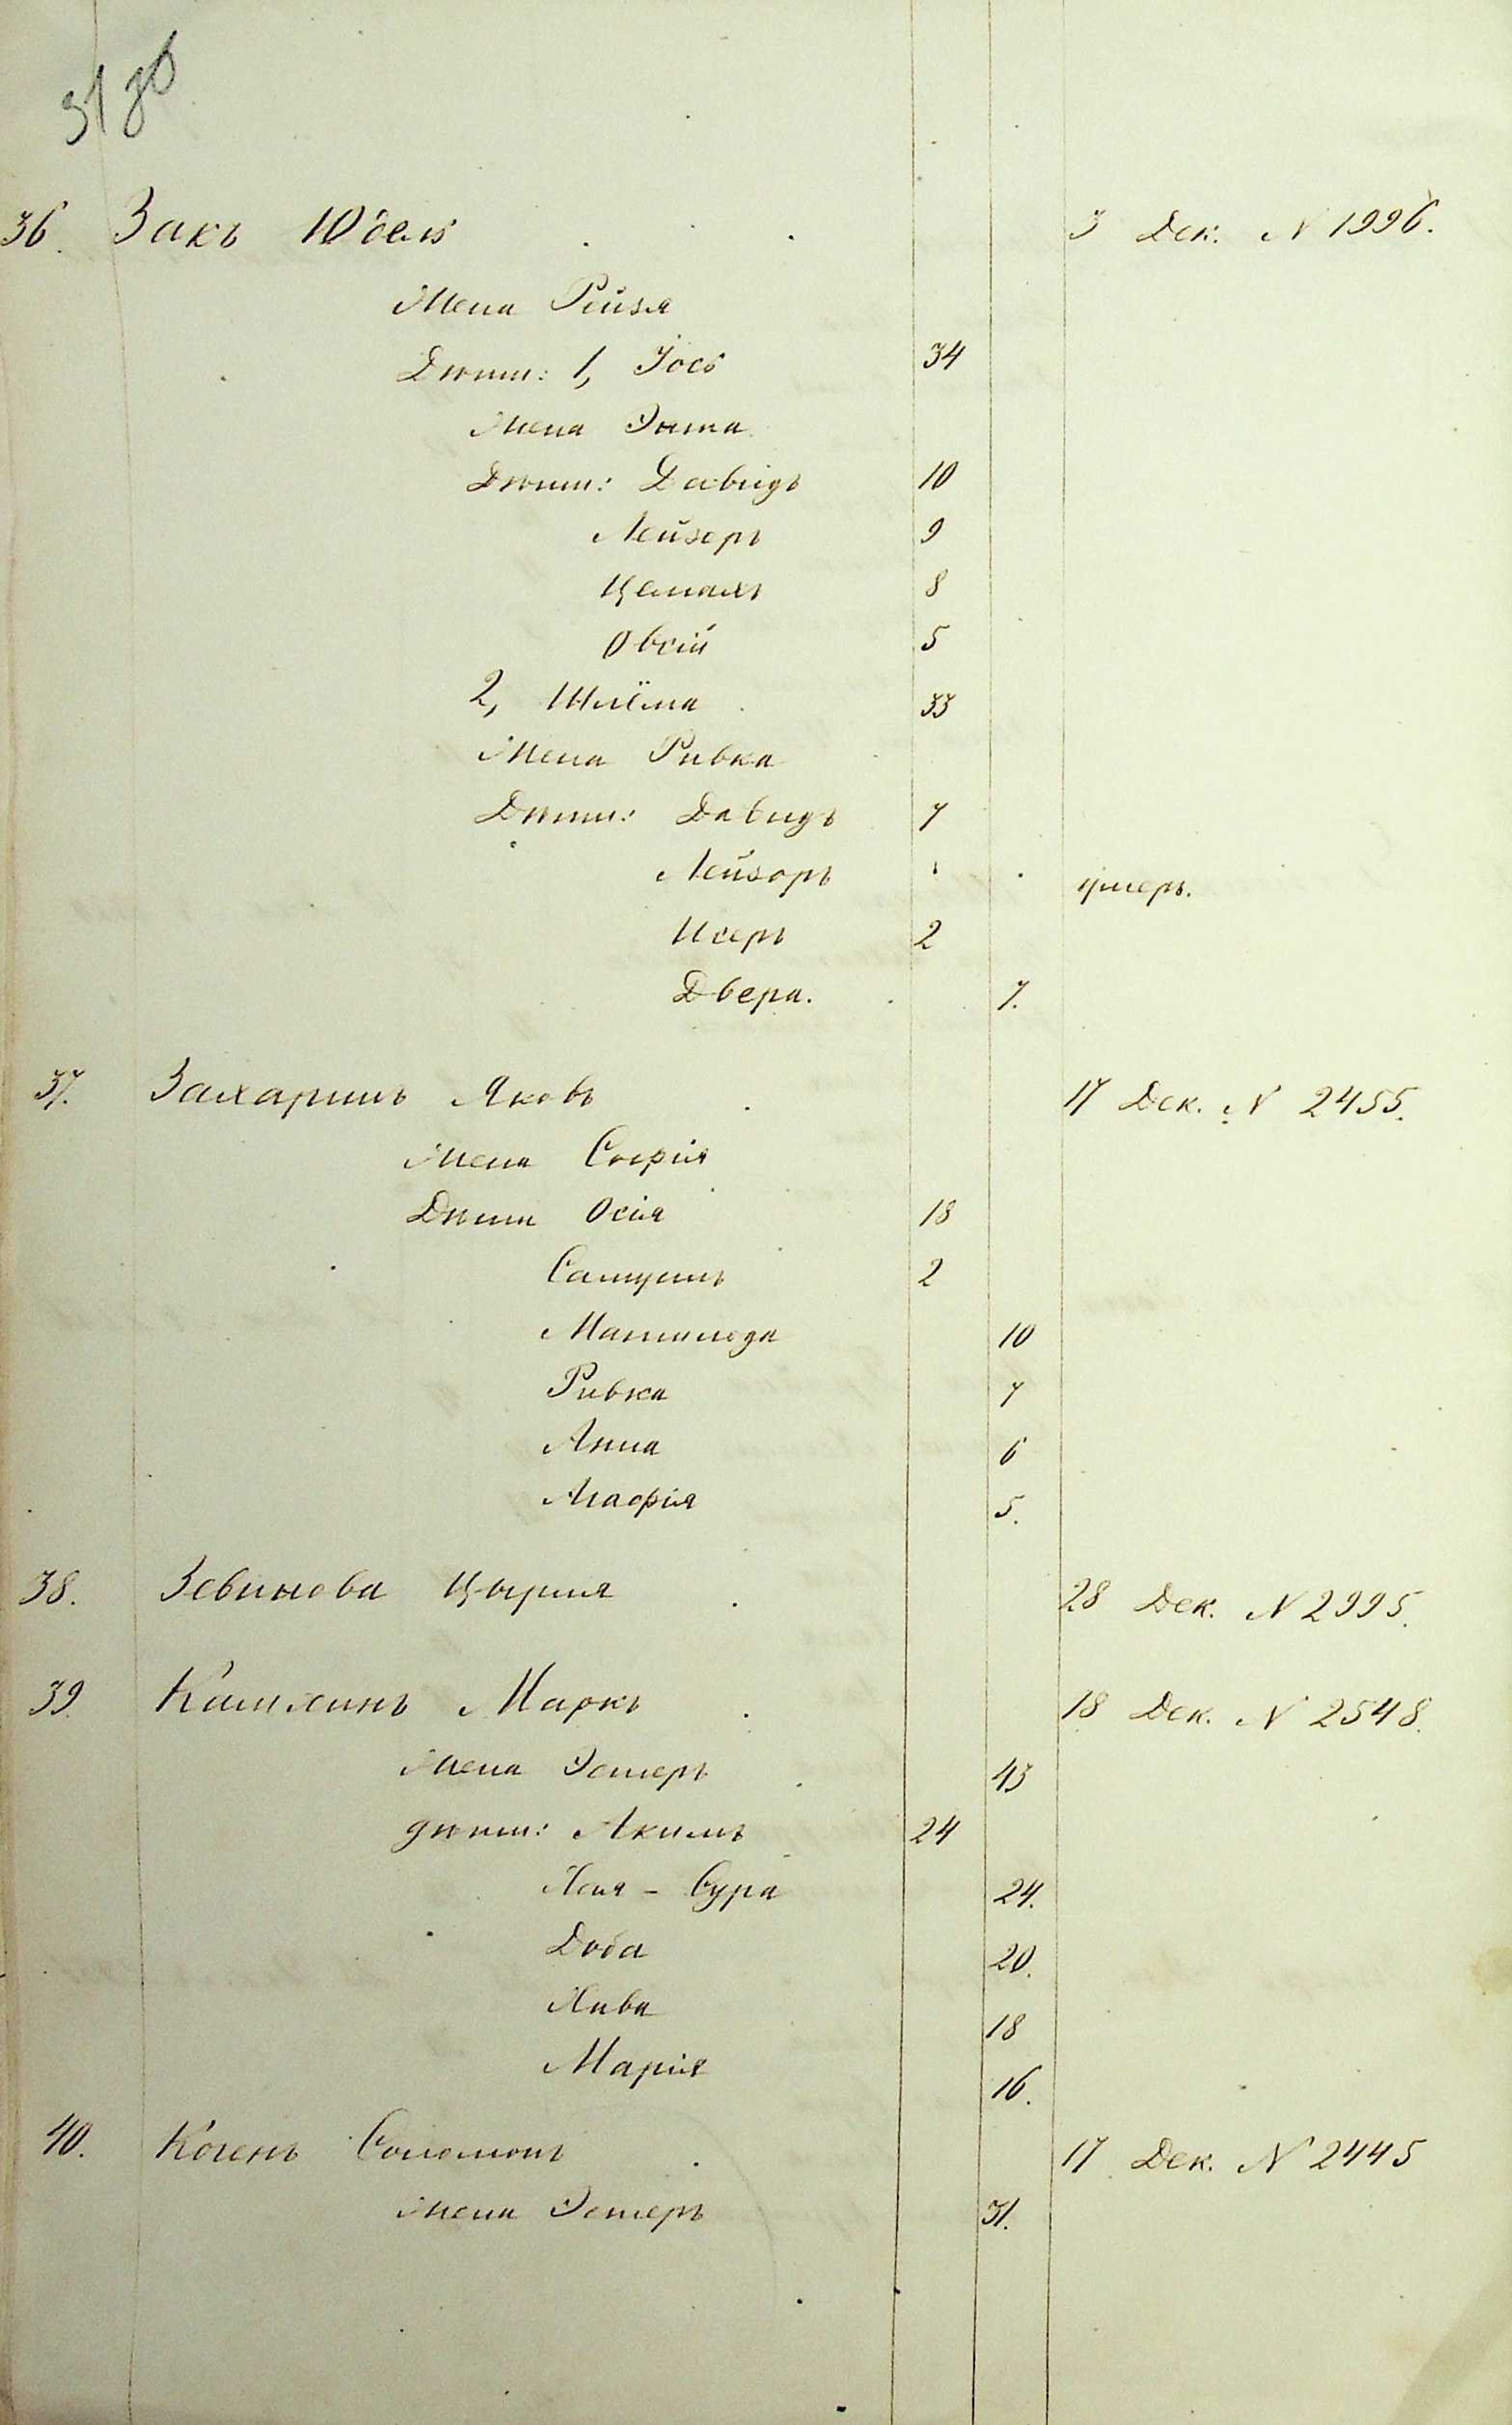 31 об
36. Закъ Юдель 3 Дек. N 1996.
Жена Рейзя
Дѣти: 1, Іось 34
Жена Энта
Дѣти: Давидъ 10
Лейзеръ 9
Цемахъ 8
Овсій 5
2, Шлёма 33
Жена Ривка
Дѣти: Давидъ 7
Лейзоръ умеръ.
Исеръ 2
Двера. 7.
37. Захаринъ Яковъ 17 Дек. N 2455.
Жена Софія
Дѣти Осія 18
Самуилъ 2
Матильда 10
Ривка 7
Анна 6
Агафія 5.
38. Зевинова Цырля 28 Дек. N 2995.
39. Маркъ 18 Дек. N 2548.
Жена Эстеръ 43
дѣти: Акимъ 24
Хая - Сура 24.
Доба 20.
Хава 18
Марія 16.
40. Когенъ Соломонъ 17 Дек. N 2445
Жена Эстеръ 31.